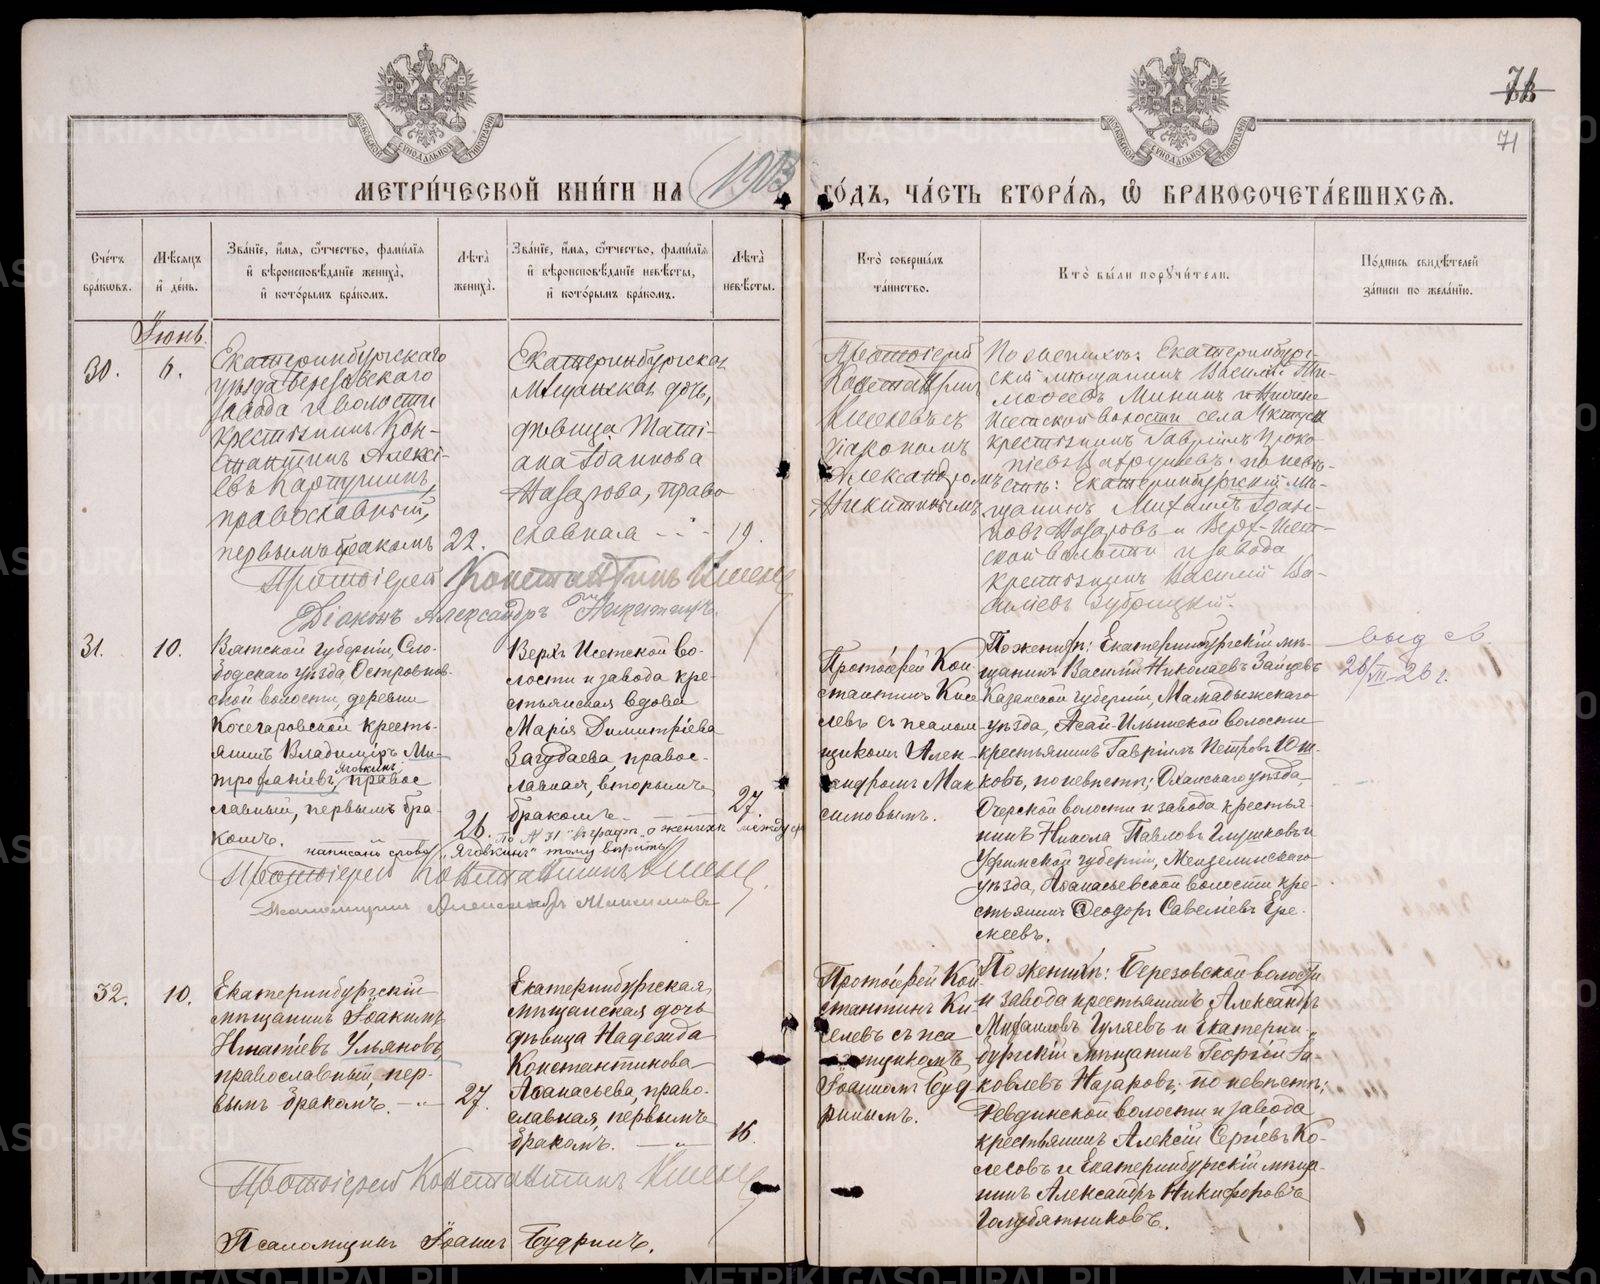 71
71
МЕТРИ́ЧЕСКОЙ КНИ́ГИ НА 1903 ГО́ДЪ, ЧА́СТЬ ВТОРА́Я, Ѡ БРАКОСОЧЕТА́ВШИХСЯ.
Сче́тъ бра́ковъ.
Мѣ́сяцъ и҆ де́нь.
Зва́нїе, и҆́мя, ѻ҆́тчество, фами́лїя и҆ вѣроисповѣ́данїе жениха̀, и҆ кото́рымъ бра́комъ.
Лѣта̀ жениха̀.
Зва́нїе, и҆́мя, ѻ҆́тчество, фами́лїя и҆ вѣроисповѣ́данїе невѣ́сты, и҆ кото́рымъ бра́комъ.
Лѣта̀ невѣ́сты.
Кто̀ соверша́лъ та́инство.
Кто̀ бы́ли порꙋчи́тели.
По́дпись свидѣ́телей за́писи по жела́нїю.
Іюнь.
30.
6.
Екатеринбургскаго
уѣзда Березовскаго
завода и волости
крестьянинъ Кон-
стантинъ Алексі-
евъ Картушинъ,
православный,
первымъ бракомъ
22.
Екатеринбургская
мѣщанская дочь,
дѣвица Таті-
ана Іванова
Назарова, право
славная
19.
Протоіерей
Константинъ
Киселевъ съ
діакономъ
Александромъ
Никитинымъ
По женихѣ: Екатеринбург-
скій мѣщанинъ Василій Ти-
мофеевъ Мининъ и Нижне
Исетской волости села Уктуса
крестьянинъ Гавріилъ Проко
піевъ по невѣ-
стѣ: Екатеринбургскій мѣ-
щанинъ Михаилъ Іван-
новъ Назаровъ и Верх-Исет-
ской волости и завода
крестьянинъ Василій Ва-
силіевъ Зубрицкій.
Протоіерей Константинъ Киселевъ
Діаконъ Александръ Никитинъ.
31.
10.
Вятской губерніи, Сло-
бодскаго уѣзда, Островнов-
ской волости, деревни
Косегаровской кресть-
янинъ Владимиръ Ми-
трофаніевъ Яговкинъ, правос
лавный, первымъ бра-
комъ.
26.
Верхъ Исетской во-
лости и завода кре-
стьянская вдова
Марія Димитріева
Загудаева, правос-
лавная, вторымъ
бракомъ.
27.
По № 31 въ графѣ о женихѣ между стр
написано слово "Яговкинъ" тому вѣрить
Протоіерей Кон
стантинъ Кисе
левъ съ псалом
щикомъ Алек-
сандромъ Мак
симовымъ.
По женихѣ: Екатеринбургскій мѣ-
щанинъ Василій Николаевъ Зайцевъ
Казанской губерніи, Мамадыжскаго
уѣзда, Асан-Ильинской волости
крестьянинъ Гавріилъ Петровъ Юш-
ковъ, по невѣстѣ: Оханскаго уѣзда,
Очерской волости и завода крестья-
нинъ Никола Павловъ Глушковъ и
Уфимской губерніи, Мензелинскаго
уѣзда, Аѳанасьевской волости кре-
стьянинъ Ѳеодоръ Савеліевъ Ере-
меевъ.
выд св.
20/VII-26 г.
Протоіерей Константинъ Киселевъ
Псаломщикъ Александръ Максимовъ
32.
10.
Екатеринбургскій
мѣщанинъ Іоакимъ
Игнатіевъ Ульяновъ,
православный, пер-
вымъ бракомъ.
27.
Екатеринбургская
мѣщанская дочь
дѣвица Надежда
Константинова
Аѳанасьева, право-
славная, первымъ
бракомъ.
16.
Протоіерей Кон
стантинъ Ки-
селевъ съ пса
ломщикомъ
Іоанномъ Буд
ринымъ.
По женихѣ: Березовской волости
и завода крестьянинъ Александръ
Михаиловъ Гуляевъ и Екатерин-
бургскій мѣщанинъ Георгій Іа-
ковлевъ Назаровъ; по невѣстѣ:
Ревдинской волости и завода
крестьянинъ Алексій Сергіевъ Ко-
лесовъ и Екатеринбургскій мѣща-
нинъ Александръ Никифоровъ
Голубятниковъ.
Протоіерей Константинъ Киселевъ
Псаломщикъ Іоаннъ Будринъ.
METRIKI.GASO-URAL.RU